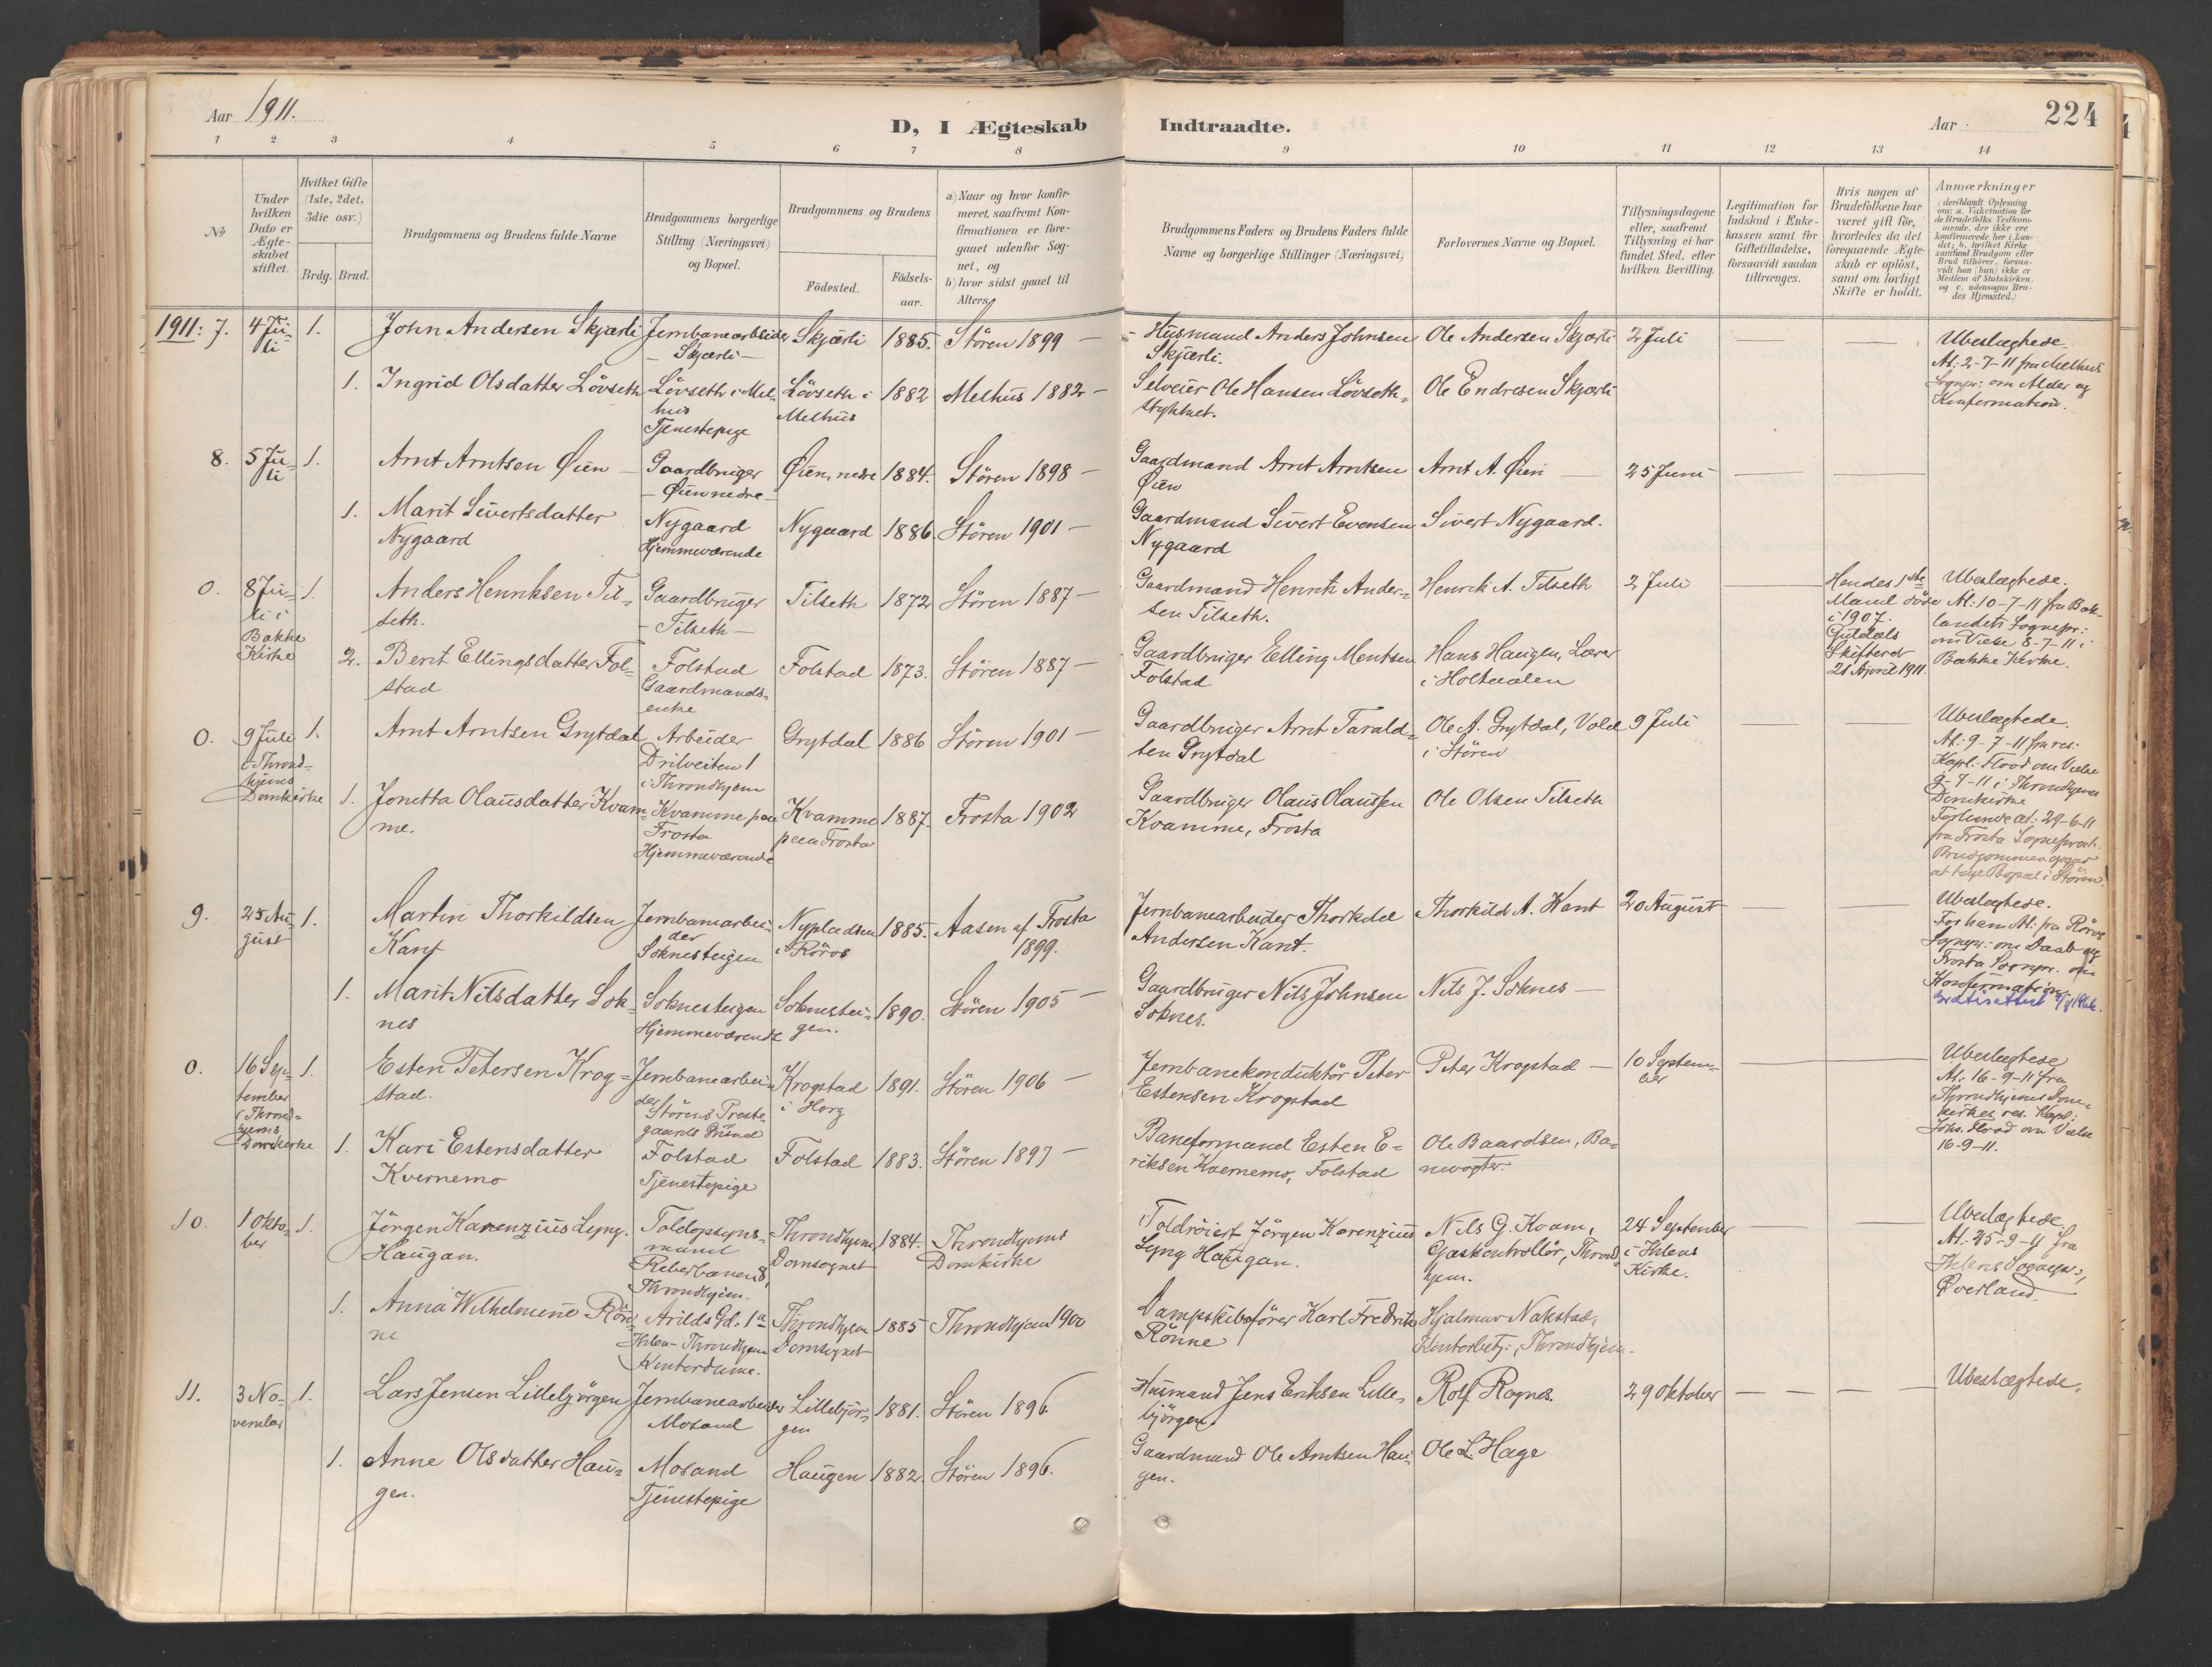 Aar 1911.
D, I Ægteskab
Indtraadte.
Aar
224
1 2 3 4 5 6 7 8 9 10 11 12 13 14
No
Under hvilken Dato er Ægteskabet stiftet.
Hvilket Gifte (1ste, 2det, 3die osv.)
Brdg. Brud.
Brudgommens og Brudens fulde Navne
Brudgommens borgerlige Stilling (Næringsvei) og Bopæl.
Brudgommens og Brudens
Födested.
Födsels-aar.
a) Naar og hvor konfirmeret, saafremt Konfirmationen er foregaaet udenfor Sognet, og
b) hvor sidst gaaet til Alters.
Brudgommens Faders og Brudens Faders fulde Navne og borgerlige Stillinger (Næringsvei)
Forlovernes Navne og Bopæl.
Tillysningsdagene eller, saafremt Tillysning ei har fundet Sted, efter hvilken Bevilling.
Legitimation for Indskud i Enkekassen samt for Giftetilladelse, forsaavidt saadan tiltrænges.
Hvis nogen af Brudefolkene har været gift før, hvorledes da det foregaaende Ægteskab er opløst, samt om lovligt Skifte er holdt.
Anmærkninger (deriblandt Oplysning om: a. Vakcination for de Brudefolks Vedkommende, der ikke ere konfirmerede her i Landet; b. hvilket Kirkesamfund Brudgom eller Brud tilhører, forsaavidt han (hun) ikke er Medlem af Statskirken, og c. udensogns Brudes Hjemsted.)
1911: 7. 4 Juli 1. John Andersen Skjærli Jernbanearbeider - Skjærli - Skjærli 1885. Stören 1899 - Husmand Anders Johnsen Skjærli. Ole Andersen Skjærli 2 Juli
Ubeslægtede. At. 2-7-11 fra Melhus Sognepr: om Alder og Konfirmation.
1. Ingrid Olsdatter Lövseth Lövseth i Melhus Tjenestepige Lövseth i Melhus 1882 Melhus 1882 - Selveier Ole Hansen Lövsethstykket. Ole Endresen Skjærli
8. 5 Juli 1. Arnt Arntsen Øien - Gaardbruger - Øien nedre - Øien, nedre 1884. Stören 1898 - Gaardmand Arnt Arntsen Øien Arnt A. Øien - 25 Juni
1. Marit Sivertsdatter Nygaard Nygaard Hjemmeværende Nygaard 1886. Stören 1901 - Gaardmand Sivert Evensen Nygaard Sivert Nygaard.
0. 8 Juli i Bakke Kirke 1. Anders Henriksen Tilseth. Gaardbruger - Tilseth - Tilseth 1872 Stören 1887 - Gaardmand Henrik Andersen Tilseth. Henrik A. Tilseth 2 Juli
Hendes 1ste Mand döde i 1907. Guldals Skifteret 21 April 1911.
Ubeslægtede. At: 10-7-11 fra Baklandets Sognepr: om Vielse 8-7-11 i Bakke Kirke.
2. Berit Ellingsdatter Folstad Folstad Gaardmandsenke Folstad 1873. Stören 1887 - Gaardbruger Elling Mentsen Folstad Hans Haugen, Lærer i Holtaalen
0. 9 Juli i Throndhjems Domkirke 1. Arnt Arntsen Grytdal Arbeider Drilveiten 1 i Throndhjem Grytdal 1886 Stören 1901 - Gaardbruger Arnt Taraldsen Grytdal Ole A. Grytdal, Vold i Stören 9 Juli
Ubeslægtede. At: 9-7-11 fra res: Kapl: Flood om Vielse 9-7-11 i Throndhjems Domkirke
29-6-11 fra Frosta Sogneprest. Brudgommen Bopæl i Stören.
1. Jonetta Olausdatter Kvamme. Kvamme paa Frosta Hjemmeværende Kvamme paa Frosta 1887. Frosta 1902 Gaardbruger Olaus Olaussen Kvamme, Frosta Ole Olsen Tilseth
9. 25 August 1. Martin Thorkildsen Kant Jernbanearbeider Soknesteigen Nypladsen i Röros 1885. Aasen af Frosta 1899. Jernbanearbeider Thorkild Andersen Kant. Thorkild A. Kant 20 August
Ubeslægtede. For ham At: fra Röros Sognepr: om Daab og Frosta Sognepr. om Konfirmation.
1. Marit Nilsdatter Soknes Soknesteigen Hjemmeværende Soknesteigen. 1890. Stören 1905 - Gaardbruger Nils Johnsen Soknes. Nils J. Soknes -
0. 16 September i Throndhjems Domkirke 1. Esten Petersen Krogstad. Jernbanearbeider Störens Prestegaards Grund Krogstad i Horg 1891. Stören 1906 - Jernbanekonduktör Peter Estensen Krogstad Peter Krogstad - 10 September
Ubeslægtede At: 16-9-11 fra Throndhjems Domkirkes res. Kapl: Johs. Flood om Vielse 16-9-11.
1. Kari Estensdatter Kvernemo Folstad Tjenestepige Folstad 1883. Stören 1897 - Baneformand Esten Eriksen Kvernemo, Folstad Ole Baardsen, Banevogter.
10. 1 Oktober 1. Jörgen Karenzius Lyng Haugan. Toldopsynsmand Reberbanen 8, Throndhjem. Throndhjem Domsognet 1884. Throndhjems Domkirke Toldröiert Jörgen Karenzius Lyng Haugan. Nils G. Kvam, Gaskontrollör, Throndhjem. 24 September i Ihlens Kirke.
Ubeslægtede. At: 25-9-11 fra Ihlens Sognepr:, Øverland.
1. Anna Wilhelmine Rönne Arilds Gd. 1a Ihlen - Throndhjem Kontordame. Throndhjem Domsognet 1885 Throndhjem 1900 Dampskibsförer Karl Fredrik Rönne Hjalmar Nakstad, Kontorbetj:, Throndhjem.
11. 3 November 1. Lars Jensen Lillebjörgen Jernbanearbeider Mosand Lillebjörgen 1881. Stören 1896. Husmand Jens Eriksen Lillebjörgen. Rolf Rognes. 29 Oktober
Ubeslægtede.
1. Anne Olsdatter Haugen. Mosand Tjenestepige Haugen 1882. Stören 1896. Gaardmand Ole Arntsen Haugen. Ole L. Hage